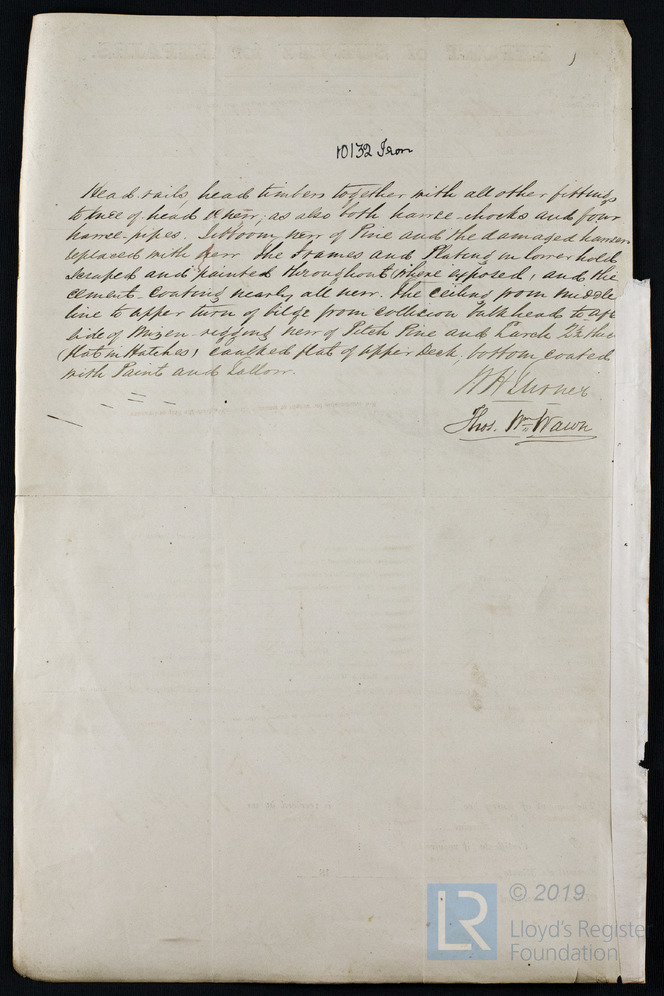 10132 Iron
Head rails, head timbers together with all other fittings
to knee of head &c new; as also both hawse-chocks and four
hawse-pipes. Jibboom new of Pine and the damaged hawser
replaced with new The Frames and Plating in lower hold
Scraped and painted throughout where exposed, and the
cement coating nearly all new. The ceiling from middle
line to upper turn of bilge from collision bulkhead to aft
side of Mizen-rigging new of Pitch Pine and Larch 2½ thk
(flat in Hatches) caulked flat of upper Deck, bottom coated
with Paint and Tallow.
W H Turner
Thos. Wm Wawn
LR © 2019
Lloyd's Register
Foundation